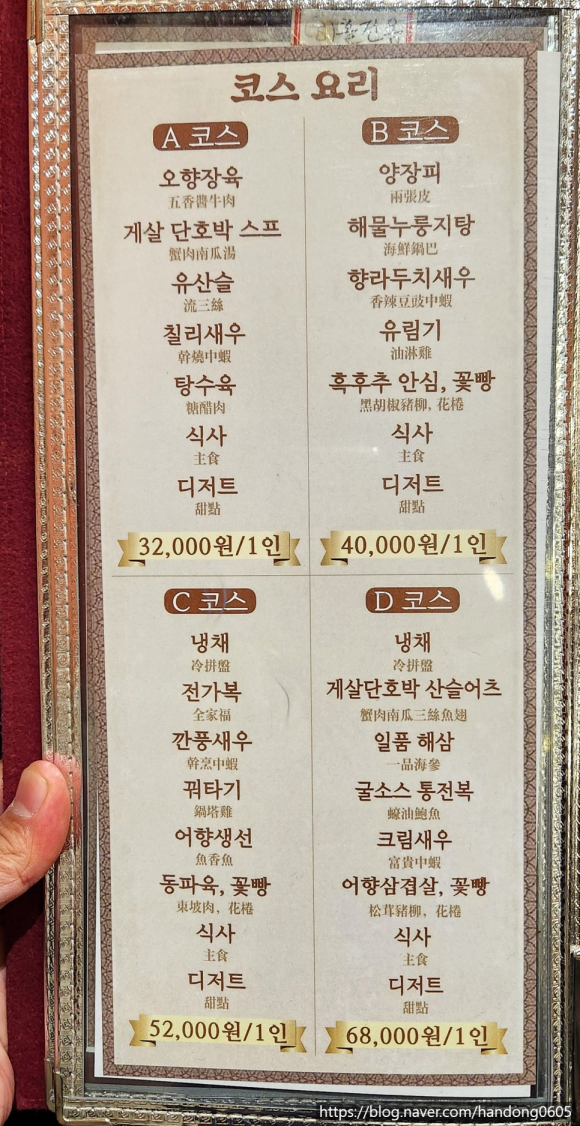 코스 요리
A 코스
오향장육
五香醬牛肉
게살 단호박 스프
蟹肉南瓜湯
유산슬
流三絲
칠리새우
幹燒中蝦
탕수육
糖醋肉
식사
主食
디저트
甜點
32,000원/1인
B 코스
양장피
兩張皮
해물누룽지탕
海鮮鍋巴
향라두치새우
香辣豆豉中蝦
유림기
油淋雞
흑후추 안심, 꽃빵
黑胡椒豬柳, 花棬
식사
主食
디저트
甜點
40,000원/1인
C 코스
냉채
冷拼盤
전가복
全家福
깐풍새우
幹烹中蝦
꿔타기
鍋塔雞
어향생선
魚香魚
동파육, 꽃빵
東坡肉, 花棬
식사
主食
디저트
甜點
52,000원/1인
D 코스
냉채
冷拼盤
게살단호박 산슬어츠
蟹肉南瓜三絲魚翅
일품 해삼
一品海參
굴소스 통전복
蠔油鮑魚
크림새우
富貴中蝦
어향삼겹살, 꽃빵
松茸豬柳, 花棬
식사
主食
디저트
甜點
68,000원/1인
https://blog.naver.com/handong0605